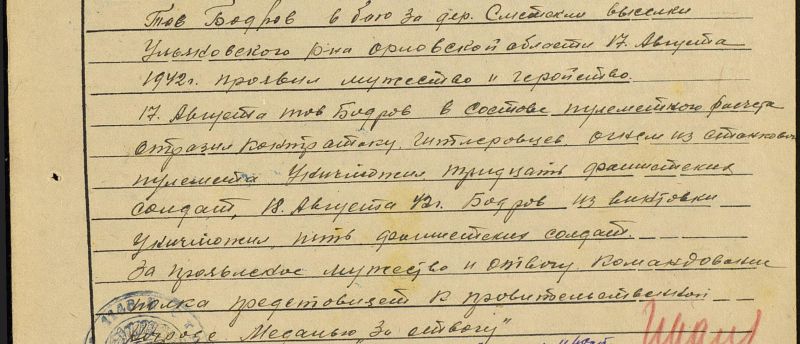 Тов Бодров в бою за дер. Сметские выселки
Ульяновского р-на Орловской области 17. Августа
1942г. проявил мужество и геройство.
17. Августа тов Бодров в составе пулеметного расчета
отразил контратаку гитлеровцев. огнем из станкового
пулемета уничтожил тридцать фашистских
солдат, 18. Августа 42г. Бодров из винтовки
уничтожил пять фашистских солдат.
За проявлское мужество и отвогу командование
полка представляет к правительственной
награде Медалью "За отвогу"